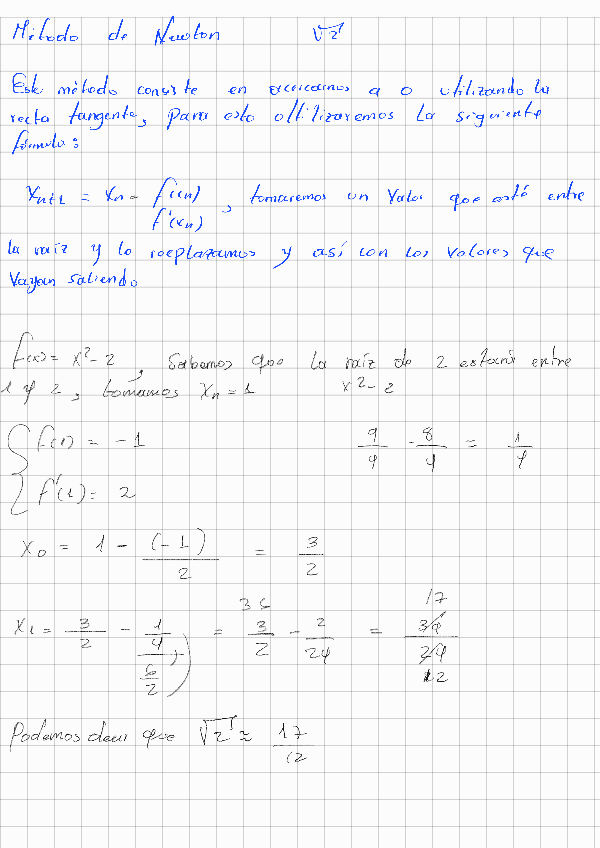 Método de Newton √2
Este método consiste en acercarnos a 0 utilizando la
recta tangente, para esto utilizaremos la siguiente
fórmula:
Xn+1 = Xn - f(xn)/f'(xn) , tomaremos un valor que esté entre
la raíz y lo reeplazamos y así con los valores que
vayan saliendo
f(x) = x²-2 , Sabemos que la raíz de 2 estará entre
1 y 2, tomamos Xn = 1 x²-2
f(1) = -1 9/4 - 8/4 = 1/4
f'(1) = 2
X0 = 1 - (-1)/2 = 3/2
36 17
X1 = 3/2 - (1/4)/(6/2) = 3/2 - 2/24 = 34/24
12
Podemos decir que √2 ≈ 17/12